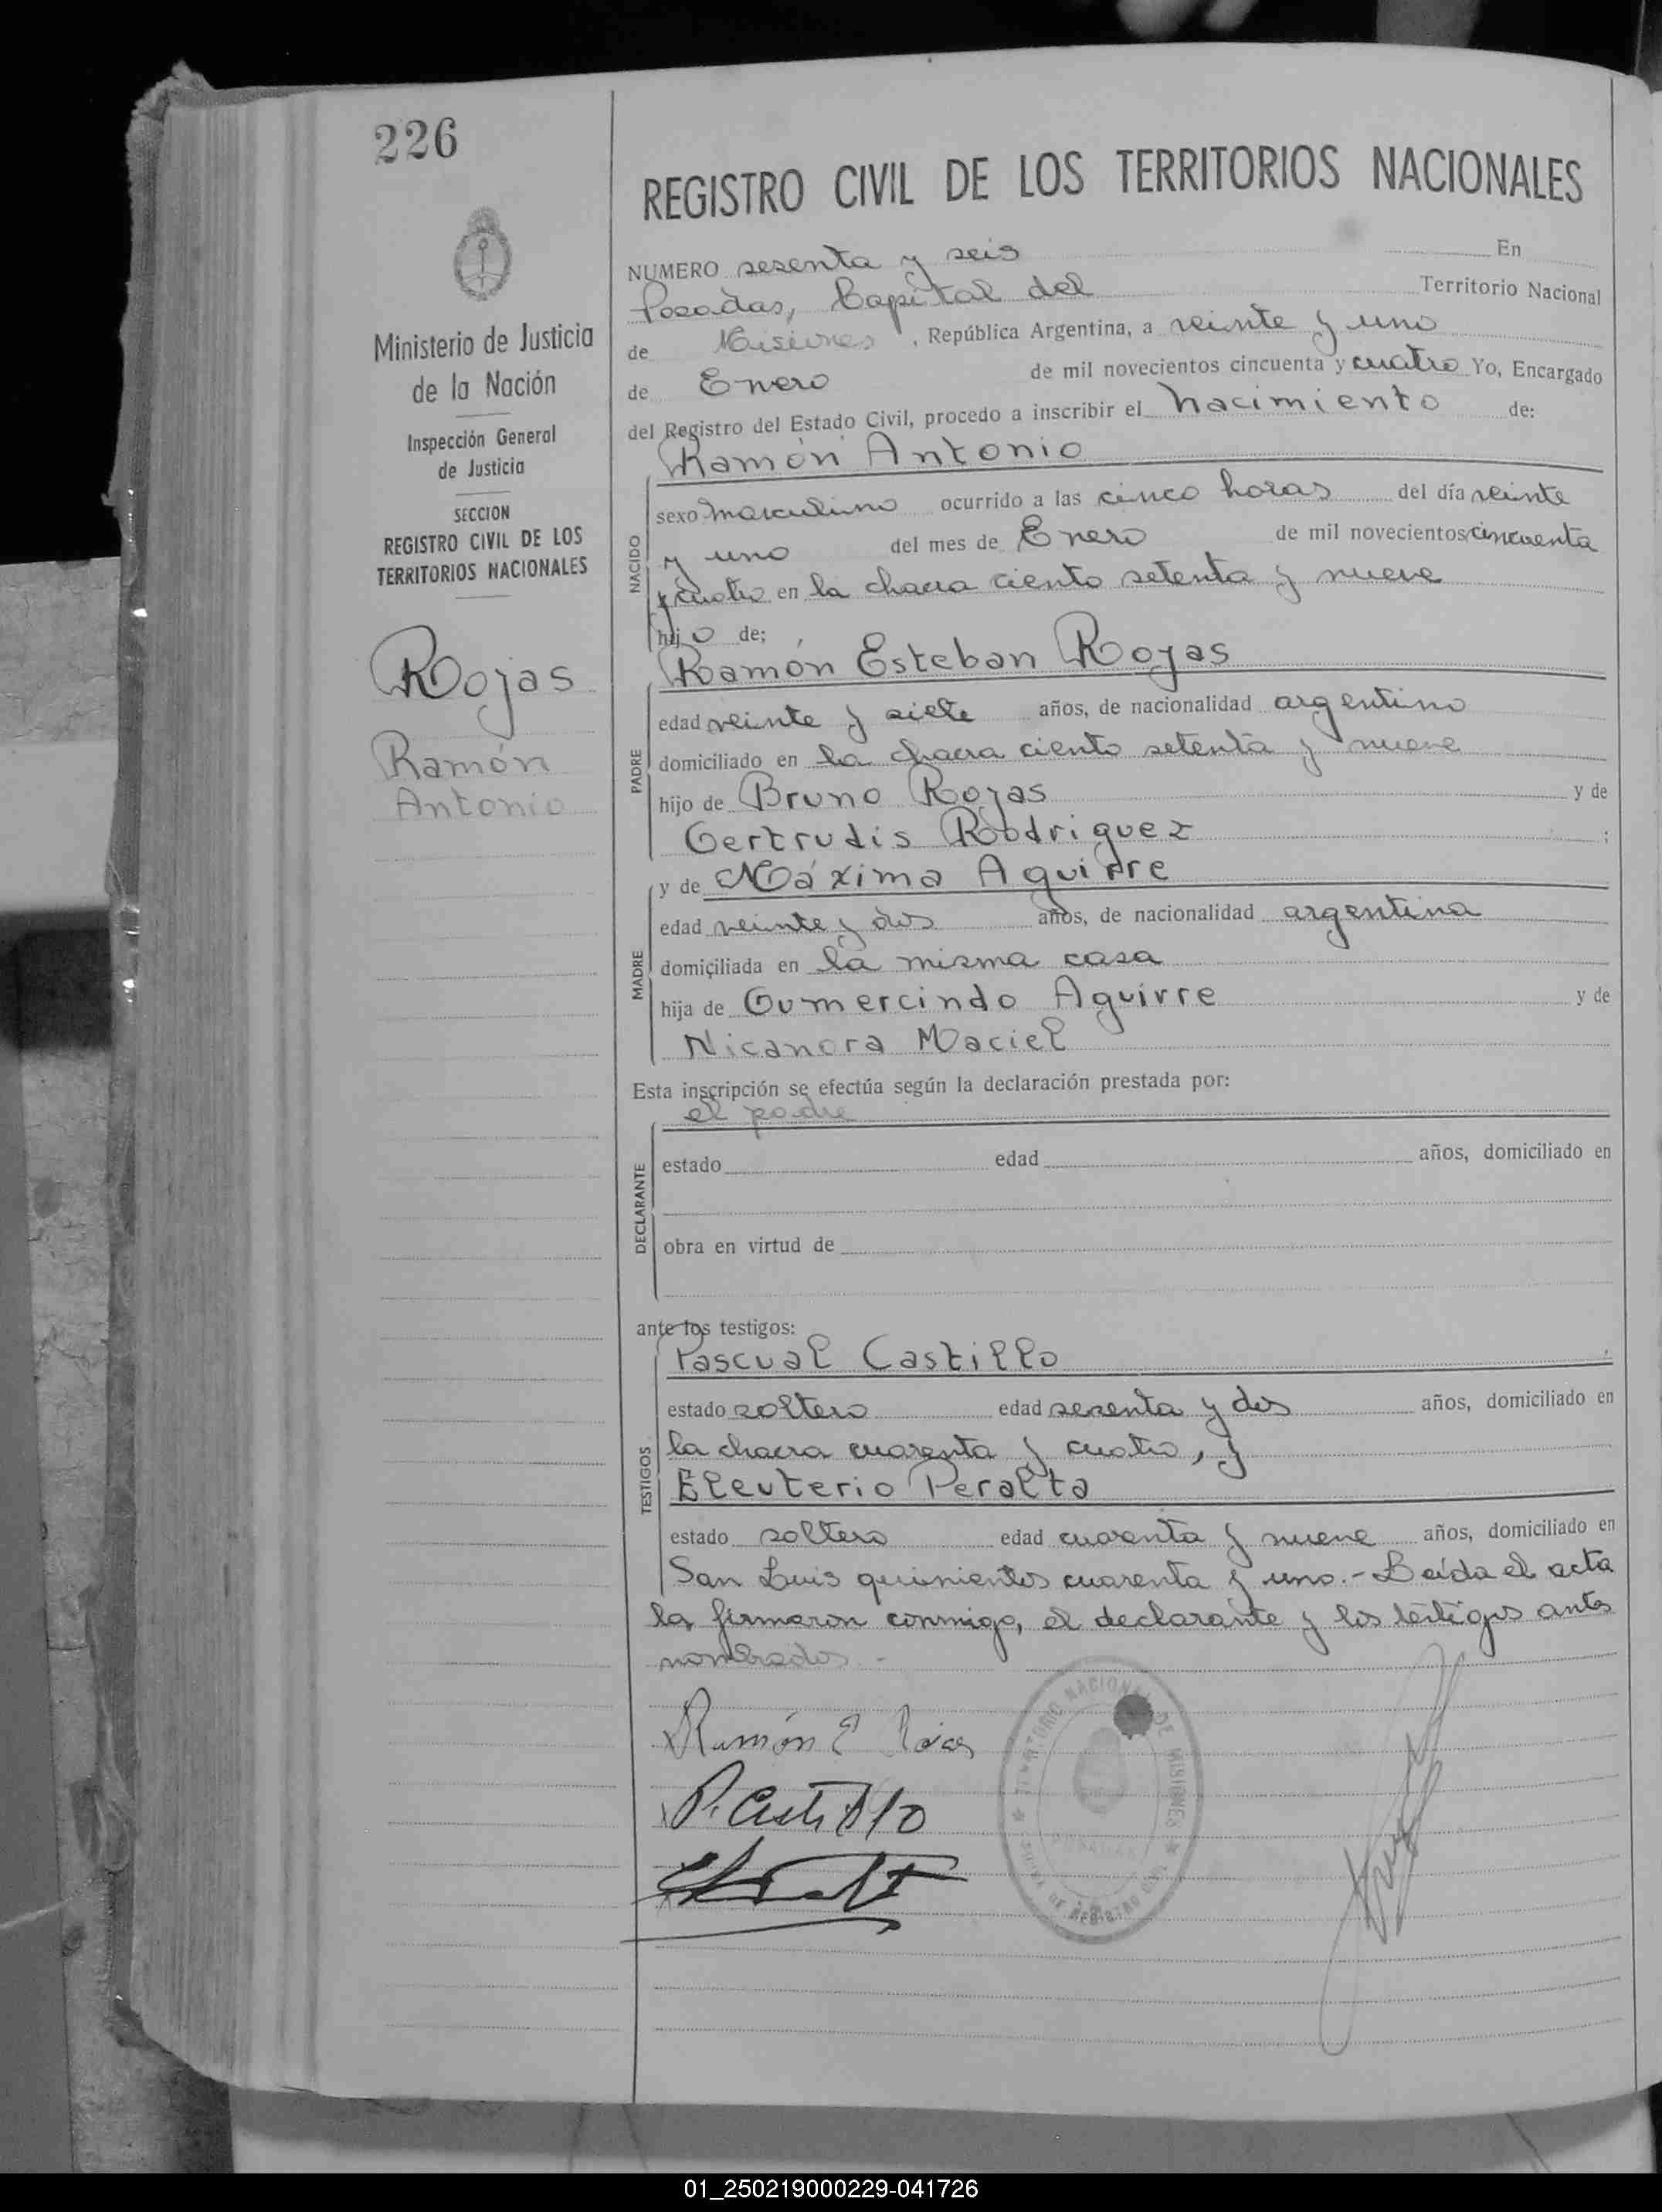 226
Ministerio de Justicia
de la Nación
Inspección General
de Justicia
SECCION
REGISTRO CIVIL DE LOS
TERRITORIOS NACIONALES
Rojas
Ramón
Antonio
REGISTRO CIVIL DE LOS TERRITORIOS NACIONALES
NUMERO sesenta y seis En
Posadas, Capital del Territorio Nacional
de Misiones, República Argentina, a veinte y uno
de Enero de mil novecientos cincuenta y cuatro Yo, Encargado
del Registro del Estado Civil, procedo a inscribir el nacimiento de:
NACIDO
Ramón Antonio
sexo masculino ocurrido a las cinco horas del día veinte
y uno del mes de Enero de mil novecientos cincuenta
y cuatro en la chacra ciento setenta y nueve
hijo de;
PADRE
Ramón Esteban Rojas
edad veinte y siete años, de nacionalidad argentino
domiciliado en la chacra ciento setenta y nueve
hijo de Bruno Rojas y de
Gertrudis Roodriguez ;
MADRE
y de Máxima Aguirre
edad veinte y dos años, de nacionalidad argentina
domiciliada en la misma casa
hija de Gumercindo Aguirre y de
Nicanora Maciel
Esta inscripción se efectúa según la declaración prestada por:
el padre
DECLARANTE
estado edad años, domiciliado en
obra en virtud de
ante los testigos:
TESTIGOS
Pascual Castillo
estado soltero edad sesenta y dos años, domiciliado en
la chacra cuarenta y cuatro, y
Eleuterio Peralta
estado soltero edad cuarenta y nueve años, domiciliado en
San Luis quinientos cuarenta y uno.- Leída el acta
la firmaron conmigo, el declarante y los testigos antes
nombrados.-
Ramón E Rojas
P. Castillo
TERRITORIO NACIONAL DE MISIONES
DE REGISTRO CIVIL
01_250219000229-041726